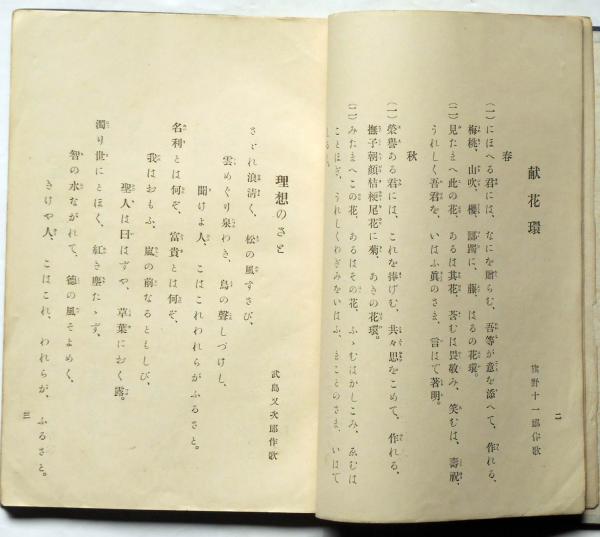 献花環
旗野十一郎作歌
春
(一)にほへる君には、なにを贈らむ、吾等が意を添へて、作れる、
梅桃、山吹、櫻、躑躅に、藤、はるの花環。
(二)見たまへ此の花、あるは其花、莟むは畏敬み、笑むは、壽祝、
うれしく吾君を、いはふ眞のさま、言はで著明。
秋
(一)榮譽ある君には、これを捧げむ、共々思をこめて、作れる、
撫子朝顔桔梗尾花に菊、あきの花環。
(二)みたまへこの花、あるはその花、ふゝむはかしこみ、ゑむは
ことほぎ、うれしくわぎみをいはふ、まことのさま、いはで
二
理想のさと
武島又次郎作歌
さゞれ浪清く、松の風すさび、
雲めぐり泉わき、鳥の聲しづけし、
聞けよ人、こはこれわれらがふるさと。
名利とは何ぞ、富貴とは何ぞ、
我はおもふ、嵐の前なるともしび、
聖人は曰はずや、草葉におく露。
濁り世にとほく、紅き塵たゝず、
智の水ながれて、徳の風そよめく、
きけや人、こはこれ、われらが、ふるさと。
三